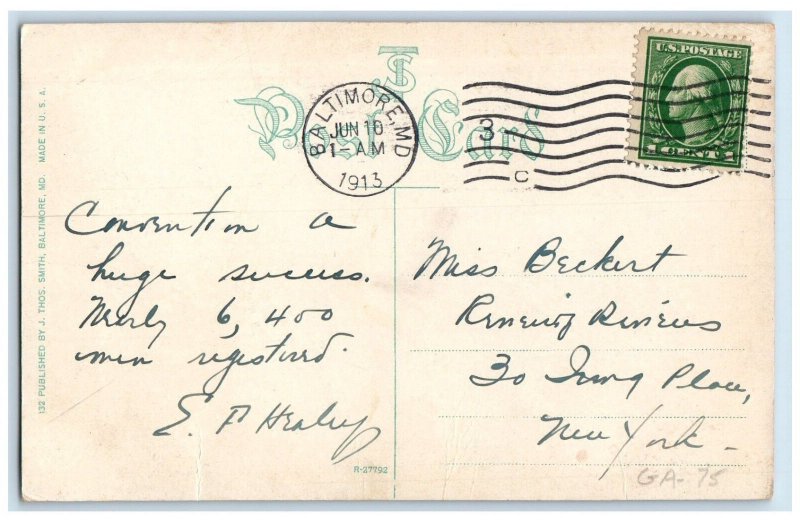 132 PUBLISHED BY J. THOS. SMITH, BALTIMORE, MD. MADE IN U. S. A.
TS
Post Card
BALTIMORE, MD
JUN 10
1-AM
1913
3
C
U.S. POSTAGE
1 CENT 1
Convention a
huge success.
Nearly 6,400
men registered.
E. P. Healy
Miss Beckert
Reviews
30 Irving Place,
New York -
R-27792
GA-75